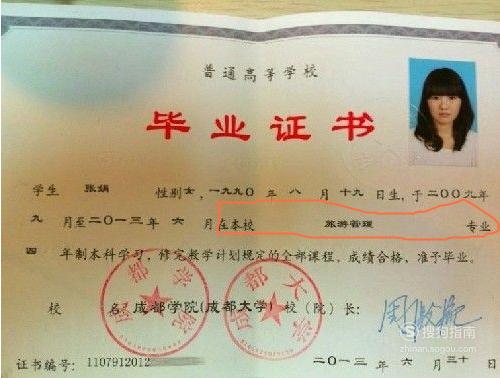 普通高等学校
毕业证书
学生 张娟 性别女,一九九〇年 八 月 十九 日生,于二〇〇九年
九 月至二〇一三年 六 月在本校 旅游管理 专业
四 年制本科学习,修完教学计划规定的全部课程,成绩合格,准予毕业。
校 名:成都学院(成都大学) 校(院)长:
成都学院
成都大学
证书编号:1107912012
二〇一三年 六 月 三十 日
搜狗指南
zhinan.sogou.com